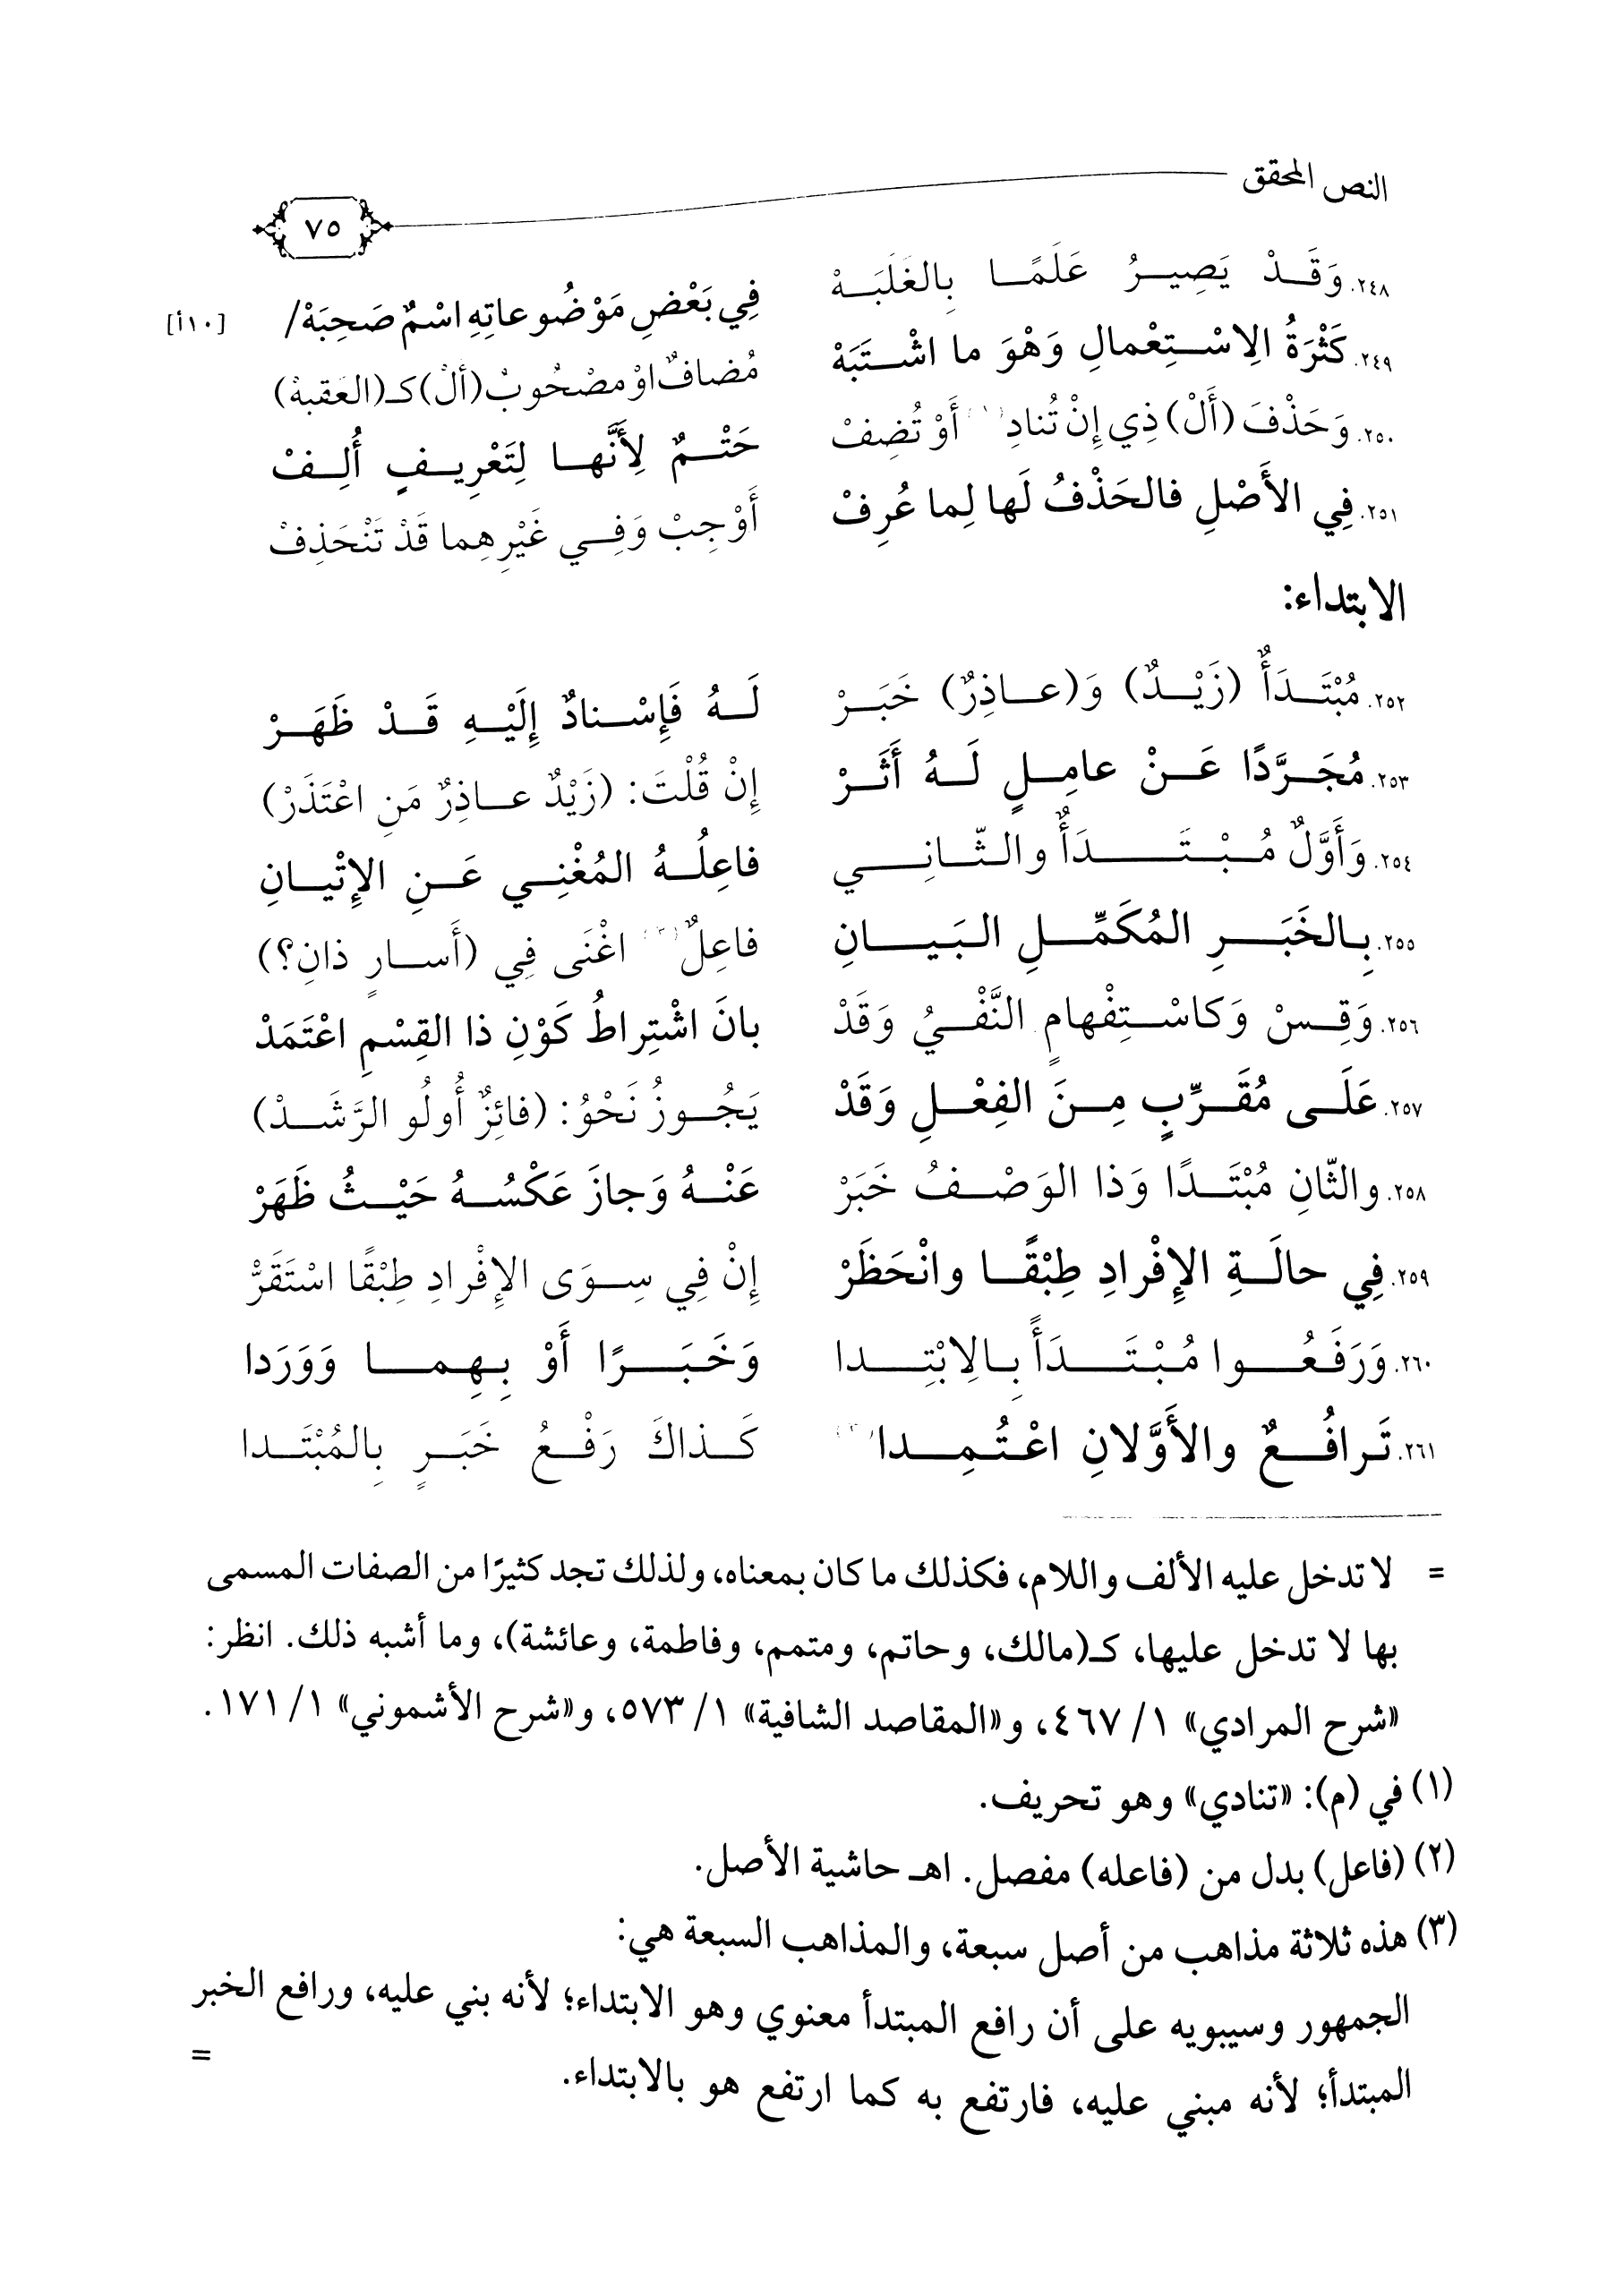 النص المحقق
٧٥
٢٤٨. وَقَدْ يَصِيرُ عَلَمًا بِالغَلَبَهْ فِي بَعْضِ مَوْضُوعاتِهِ اسْمٌ صَحِبَهْ/ [١٠أ]
٢٤٩. كَثْرَةُ الِاسْتِعْمالِ وَهْوَ ما اشْتَبَهْ مُضافٌ اوْ مصْحُوبُ (ألْ) كـ(العَقبهْ)
٢٥٠. وَحَذْفَ (أَلْ) ذِي إِنْ تُنادِ(١) أَوْ تُضِفْ حَتْمٌ لِأَنَّها لِتَعْرِيفٍ أُلِفْ
٢٥١. فِي الأَصْلِ فالحَذْفُ لَها لِما عُرِفْ أَوْجِبْ وَفِي غَيْرِهِما قَدْ تَنْحَذِفْ
الابتداء:
٢٥٢. مُبْتَدَأٌ (زَيْدٌ) وَ(عاذِرٌ) خَبَرْ لَهُ فَإِسْنادٌ إِلَيْهِ قَدْ ظَهَرْ
٢٥٣. مُجَرَّدًا عَنْ عامِلٍ لَهُ أَثَرْ إِنْ قُلْتَ: (زَيْدٌ عاذِرٌ مَنِ اعْتَذَرْ)
٢٥٤. وَأَوَّلٌ مُبْتَدَأٌ والثّانِي فاعِلُهُ المُغْنِي عَنِ الإِتْيانِ
٢٥٥. بِالخَبَرِ المُكَمِّلِ البَيانِ فاعِلٌ(٢) اغْنَى فِي (أَسارٍ ذانِ؟)
٢٥٦. وَقِسْ وَكاسْتِفْهامٍ النَّفْيُ وَقَدْ بانَ اشْتِراطُ كَوْنِ ذا القِسْمِ اعْتَمَدْ
٢٥٧. عَلَى مُقَرِّبٍ مِنَ الفِعْلِ وَقَدْ يَجُوزُ نَحْوُ: (فائِزٌ أُولُو الرَّشَدْ)
٢٥٨. والثّانِ مُبْتَدًا وَذا الوَصْفُ خَبَرْ عَنْهُ وَجازَ عَكْسُهُ حَيْثُ ظَهَرْ
٢٥٩. فِي حالَةِ الإِفْرادِ طِبْقًا وانْحَظَرْ إِنْ فِي سِوَى الإِفْرادِ طِبْقًا اسْتَقَرّْ
٢٦٠. وَرَفَعُوا مُبْتَدَأً بِالِابْتِدا وَخَبَرًا أَوْ بِهِما وَوَرَدا
٢٦١. تَرافُعٌ والأَوَّلانِ اعْتُمِدا(٣) كَذاكَ رَفْعُ خَبَرٍ بِالمُبْتَدا
= لا تدخل عليه الألف واللام، فكذلك ما كان بمعناه، ولذلك تجد كثيرًا من الصفات المسمى
بها لا تدخل عليها، كـ(مالك، وحاتم، ومتمم، وفاطمة، وعائشة)، وما أشبه ذلك. انظر:
«شرح المرادي» ١/ ٤٦٧، و«المقاصد الشافية» ١/ ٥٧٣، و«شرح الأشموني» ١/ ١٧١.
(١) في (م): «تنادي» وهو تحريف.
(٢) (فاعل) بدل من (فاعله) مفصل. اهـ حاشية الأصل.
(٣) هذه ثلاثة مذاهب من أصل سبعة، والمذاهب السبعة هي:
الجمهور وسيبويه على أن رافع المبتدأ معنوي وهو الابتداء؛ لأنه بني عليه، ورافع الخبر
المبتدأ؛ لأنه مبني عليه، فارتفع به كما ارتفع هو بالابتداء. =